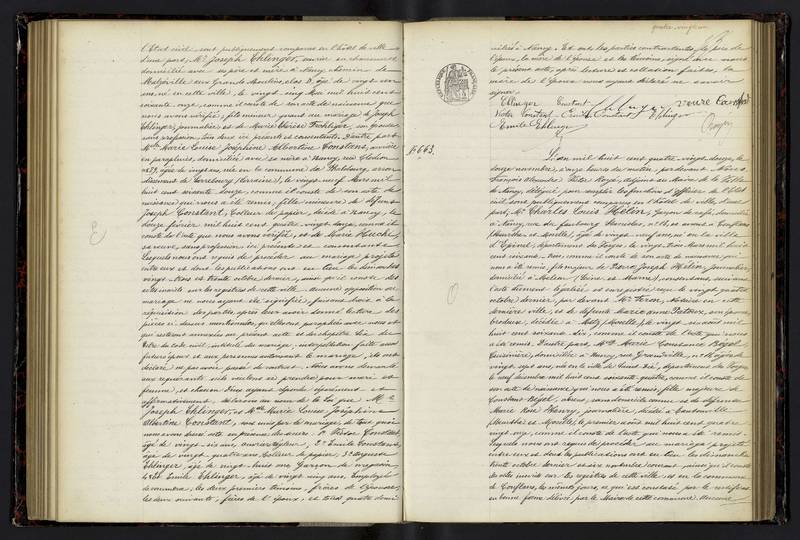 l'Etat civil sont publiquement comparus en l'hôtel de ville
d'une part, Mr Joseph Ehlinger, ouvrier en chaussures
domicilié avec ses père et mère à Nancy, chemin de
Malzéville aux Grands Moulins, clos D, âgé de vingt un
ans, né en cette ville, le vingt cinq Mai mil huit cent
soixante onze, comme il conste de son acte de naissance que
nous avons vérifié, fils mineur quant au mariage de Joseph
Ehlinger, journalier et de Marie Thérèse
sans profession, tous deux ici présents et consentants. D'autre part
Mlle Marie Louise Joséphine Albertine Constant, ouvrière
en parapluies, domiciliée avec sa mère à Nancy, rue
âgée de vingt ans, née en la commune de Phalsbourg, arron
dissement de Sarrebourg (Lorraine), le vingt neuf Mars mil
huit cent soixante douze, comme il conste de son acte de
naissance qui nous a été remis, fille mineure de défunt
Joseph Constant, Colleur de papier, décédé à Nancy, le
douze février mil huit cent quatre vingt douze, comme il
conste de l'acte que nous avons vérifié, et de Marie
sa veuve, sans profession, ici présente et consentante
Lesquels nous ont requis de procéder au mariage projeté
entre eux et dont les publications ont eu lieu les dimanches
vingt-trois et trente octobre dernier, ainsi qu'il conste des
actes inscrits sur les registres de cette ville. Aucune opposition au
mariage ne nous ayant été signifiée, faisons droit à la
réquisition des parties, après leur avoir donné lecture des
pièces ci-dessus mentionnées, qu'elles ont paraphées avec nous et
qui resteront annexées au présent acte et du chapitre six du
titre du code civil, intitulé du mariage, interpellation faite aux
futurs époux et aux personnes autorisant le mariage, ils ont
déclaré ne pas avoir passé de contrat. Nous avons demandé
aux requérants s'ils veulent se prendre pour mari et
femme et chacun d'eux ayant répondu séparément et
affirmativement, déclarons au nom de la loi que Mr
Joseph Ehlinger, et Mlle Marie Louise Joséphine
Albertine Constant, sont unis par le mariage; de tout quoi
nous avons dressé acte en présence des sieurs: 1° Victor Constant
âgé de vingt-six ans, 2° Emile Constant,
âgé de vingt quatre ans, Colleur de papier; 3° Auguste
Ehlinger, âgé de vingt-huit ans, Garçon de magasin
4° et Emile Ehlinger, âgé de vingt cinq ans, Employé
de commerce, les deux premiers témoins, frères de l'épouse,
les deux suivants, frères de l'époux, et tous quatre domi
ciliés à Nancy. Et ont les parties contractantes, le père de
l'époux, la mère de l'épouse et les témoins, signé avec nous
le présent acte, après lecture et collation faites, la
mère de l'époux nous ayant déclaré ne savoir
signer.
Ehlinger Constant Ehlinger veuve Constant
Victor Constant Emile Constant Ehlinger
Emile Ehlinger
N° 663.
L'an mil huit cent quatre vingt douze, le
douze novembre, à onze heures du matin, par devant Nous
François Alexandre Victor Noyé, adjoint au Maire de la Ville
de Nancy, délégué pour remplir les fonctions d'officier de l'Etat
civil, sont publiquement comparus en l'hôtel de ville d'une
part, Mr Charles Louis Hélin, Garçon de café, domicilié
à Nancy, rue du faubourg Stanislas, n° 16, et avant à Conflans
(Meurthe et Moselle), âgé de vingt neuf ans, né en la ville
d'Epinal, département des Vosges, le vingt trois Mars mil huit
cent soixante-trois, comme il conste de son acte de naissance, qui
nous a été remis, fils majeur de Pierre Joseph Hélin, journalier
domicilié à Melun (Seine et Marne), consentant suivant
l'acte dûment légalisé et enregistré reçu le vingt quatre
octobre dernier, par devant Me Féron, Notaire en cette
dernière ville, et de défunte Marie Anne Patoux, son épouse,
brodeuse, décédée à Metz (Moselle), le vingt un août mil
huit cent soixante dix, comme il conste de l'acte qui nous
a été remis. D'autre part, Mlle Marie Constance Bégel
Cuisinière, domiciliée à Nancy, rue Grandville, n° 16, âgée de
vingt sept ans, née en la ville de Saint Dié, département des Vosges,
le neuf décembre mil huit cent soixante quatre, comme il conste de
son acte de naissance qui nous a été remis, fille majeure de
Constant Bégel, absent, sans domicile connu et de défunte
Marie Rose Thiery, journalière, décédée à
(Meurthe et Moselle), le premier août mil huit cent quatre
vingt onze, comme il conste de l'acte qui nous a été remis.
Lesquels nous ont requis de procéder au mariage projeté
entre eux et dont les publications ont eu lieu les dimanches
trente octobre dernier et six novembre courant, ainsi qu'il conste
des actes inscrits sur les registres de cette ville et en la commune
de Conflans, les mêmes jours, ce qui est constaté par le certificat
en bonne forme délivré par le Maire de cette commune. Aucune